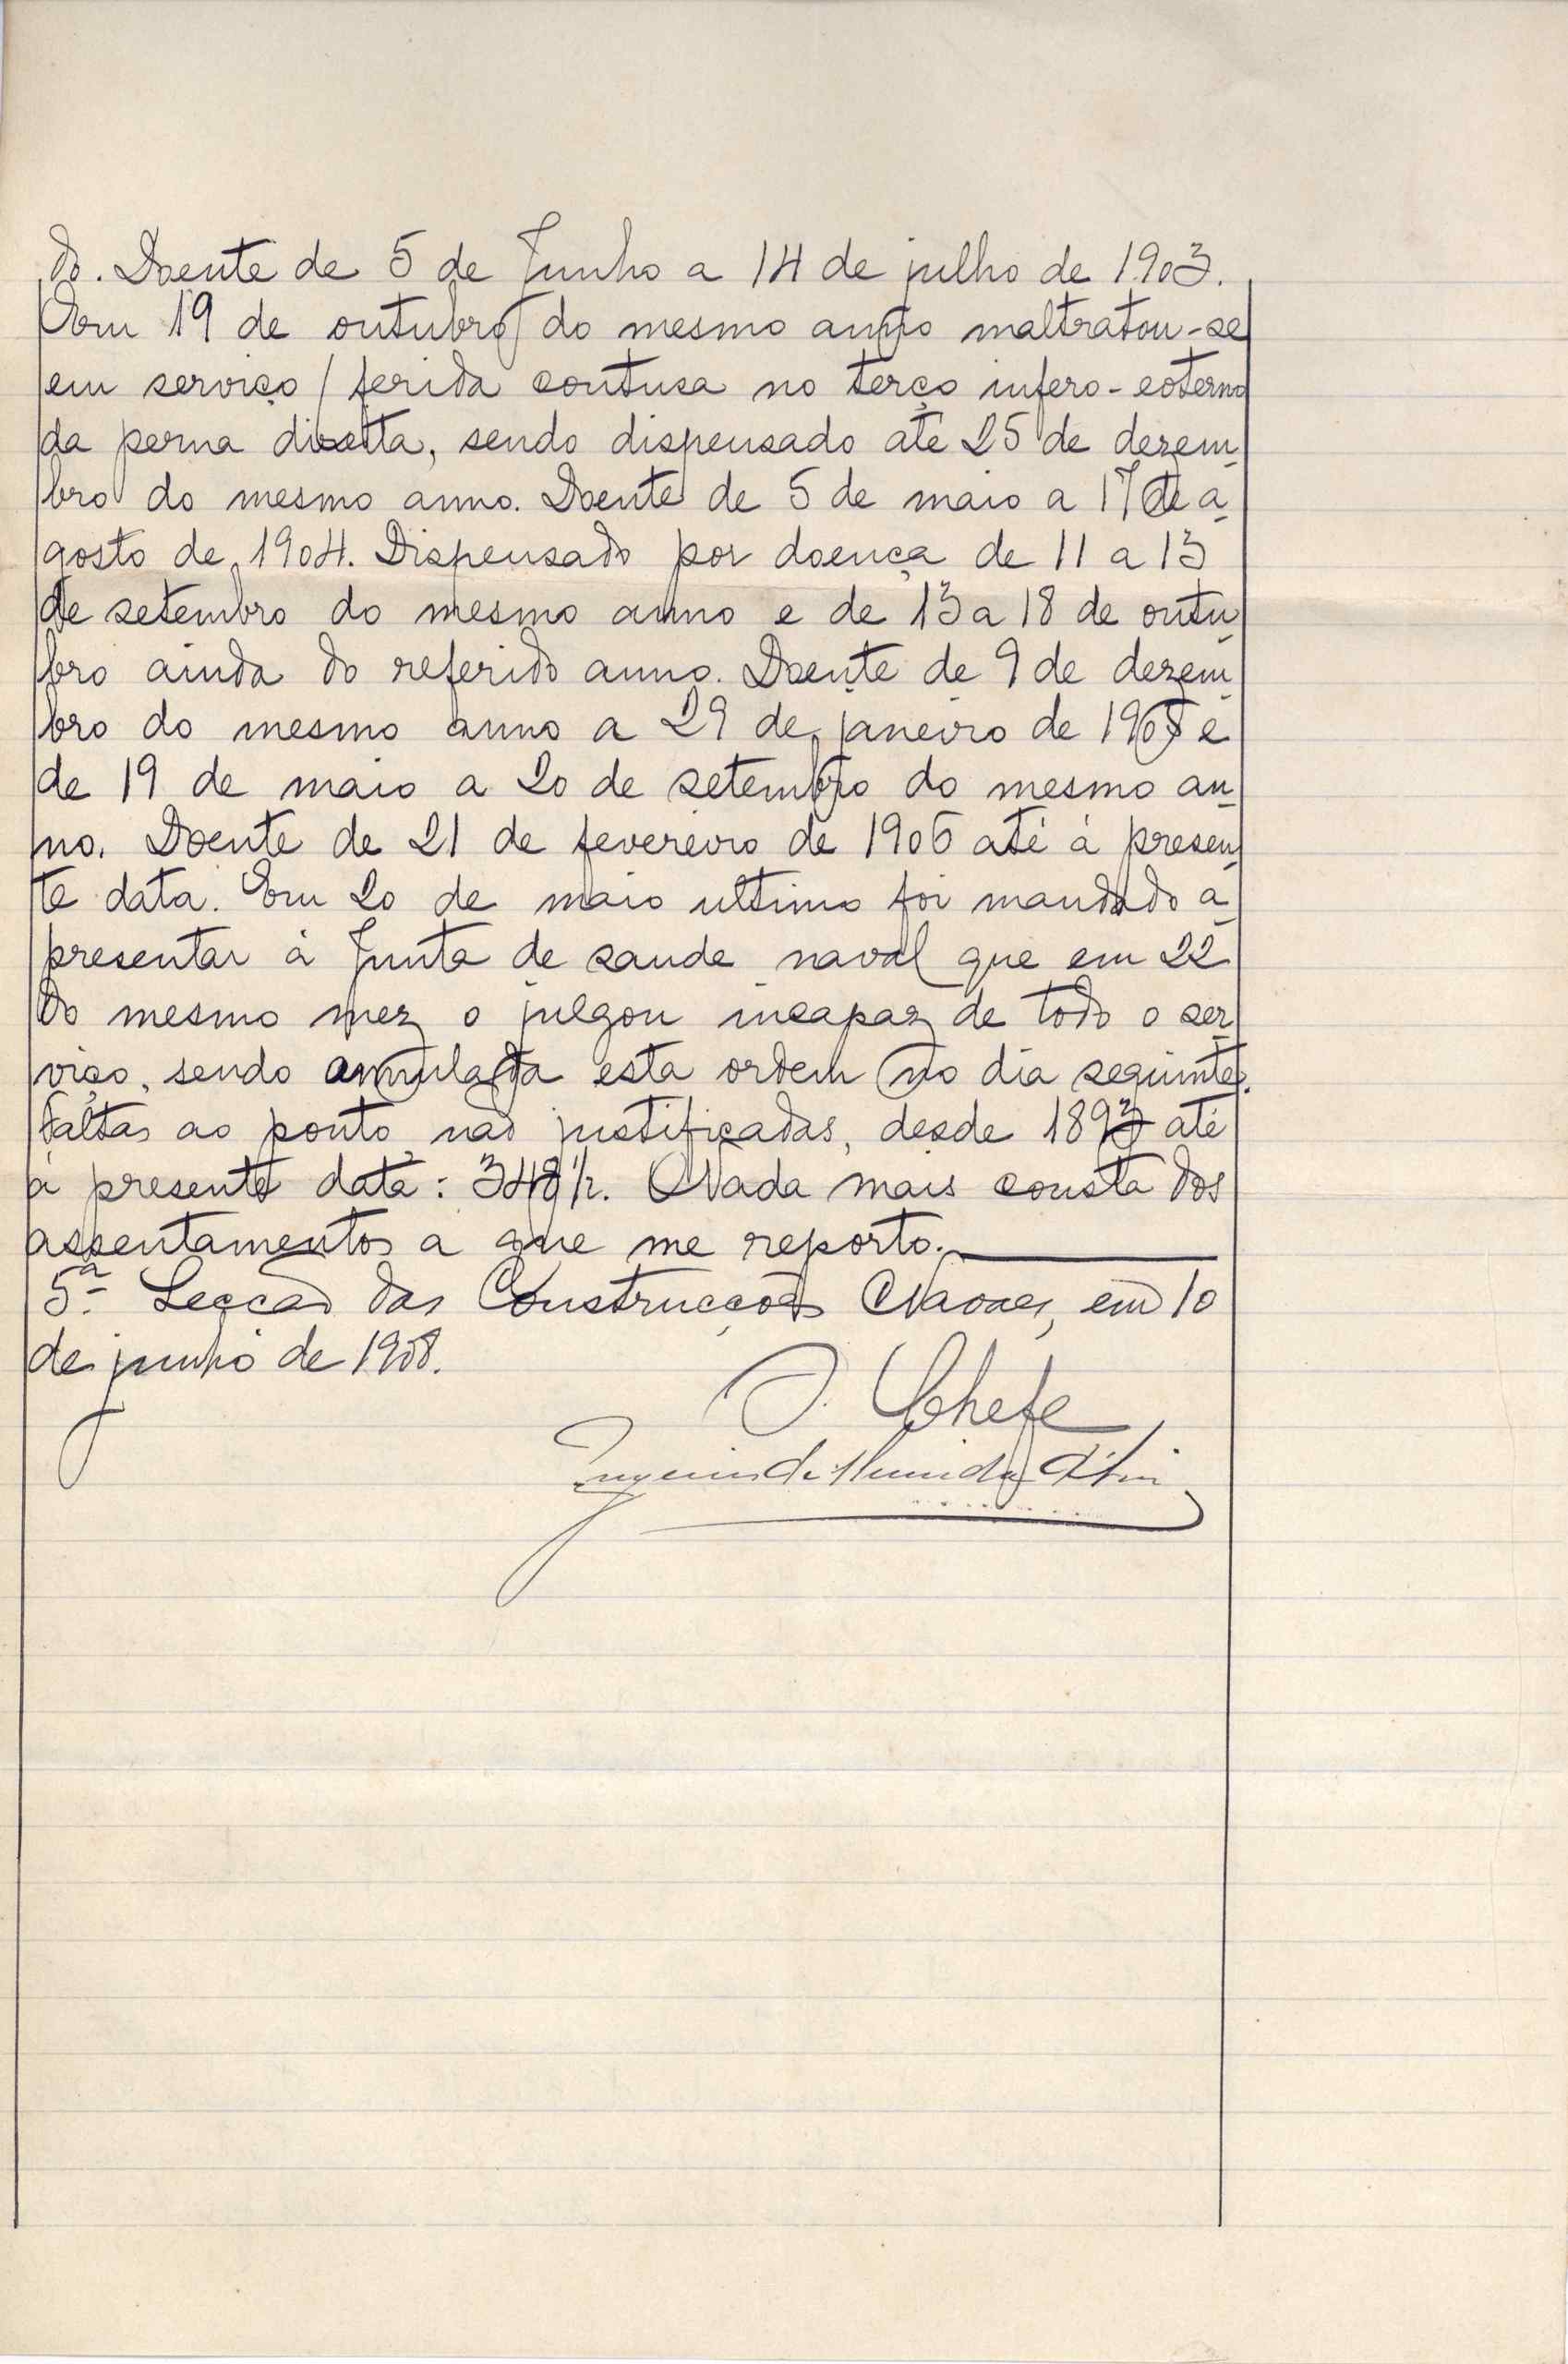 do. Doente de 5 de Junho a 14 de julho de 1903.
Em 19 de outubro do mesmo anno maltratou-se
em serviço / ferida contusa no terço infero-externo
da perna direita, sendo dispensado até 25 de dezem-
bro do mesmo anno. Doente de 5 de maio a 17 de a-
gosto de 1904. Dispensado por doença de 11 a 13
de setembro do mesmo anno e de 13 a 18 de outu-
bro ainda do referido anno. Doente de 9 de dezem-
bro do mesmo anno a 29 de janeiro de 1905 e
de 19 de maio a 20 de setembro do mesmo an-
no. Doente de 21 de fevereiro de 1906 até á presen-
te data. Em 20 de maio ultimo foi mandado a-
presentar á Junta de saude naval que em 22
do mesmo mez o julgou incapaz de todo o ser-
viço, sendo annulada esta ordem no dia seguinte.
Faltas ao ponto não justificadas, desde 1893 até
á presente data: 348 1/2. Nada mais consta dos
assentamentos a que me reporto.
5.ª Secção das Construcções Navaes, em 10
de junho de 1908.
O Chefe